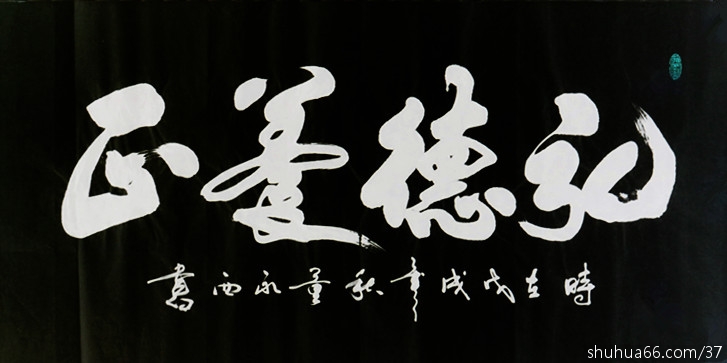 礼德养正
時在戊戌年秋董永西書
shuhua66.com/37